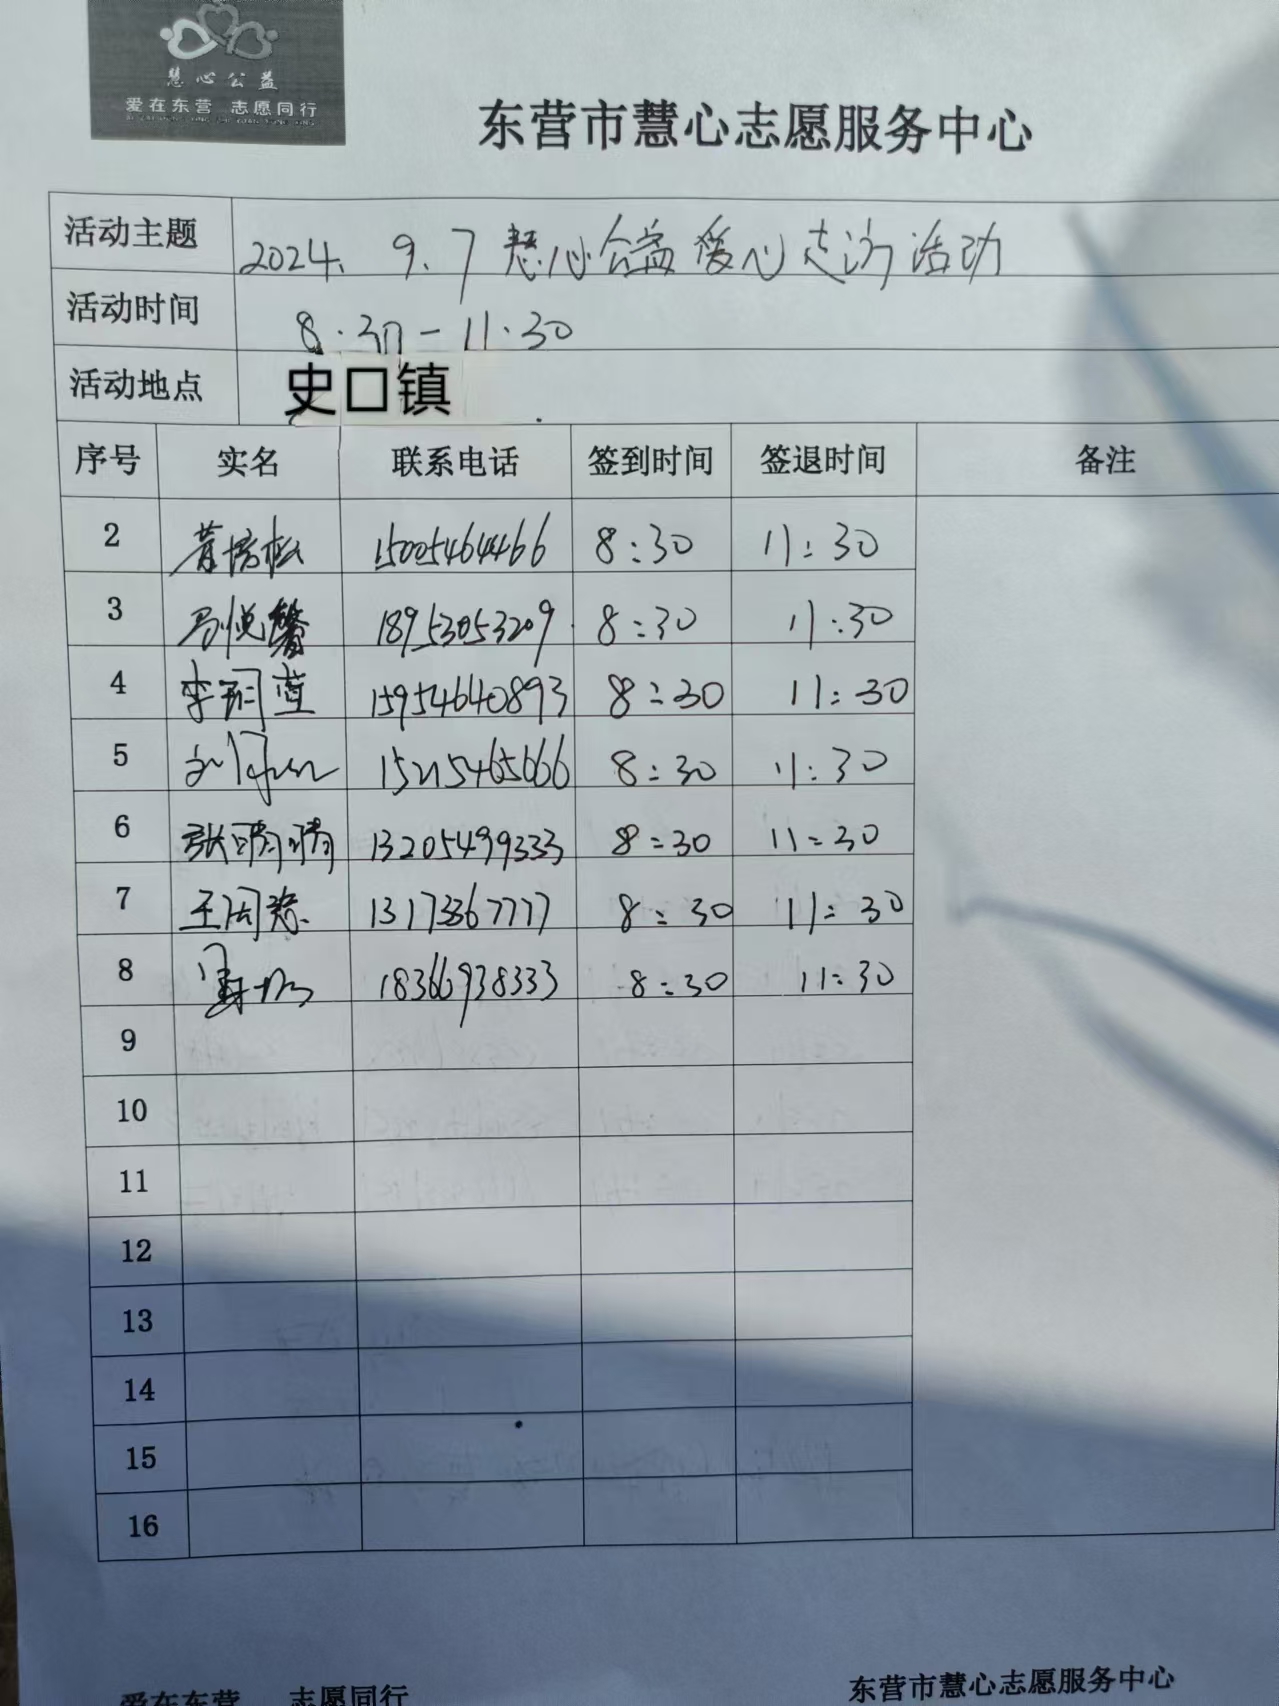 慧心公益
爱在东营 志愿同行
东营市慧心志愿服务中心
活动主题 2024. 9. 7 慧心公益爱心走访活动
活动时间 8.30-11.30
活动地点 史口镇
序号 实名 联系电话 签到时间 签退时间 备注
2 15005464466 8:30 11:30
3 悦馨 18953053209 8:30 11:30
4 李 15954640893 8:30 11:30
5 8:30 11:30
6 张晴晴 13205499333 8:30 11:30
7 王 13173367777 8:30 11:30
8 18366938333 8:30 11:30
9
10
11
12
13
14
15
16
爱在东营 志愿同行 东营市慧心志愿服务中心